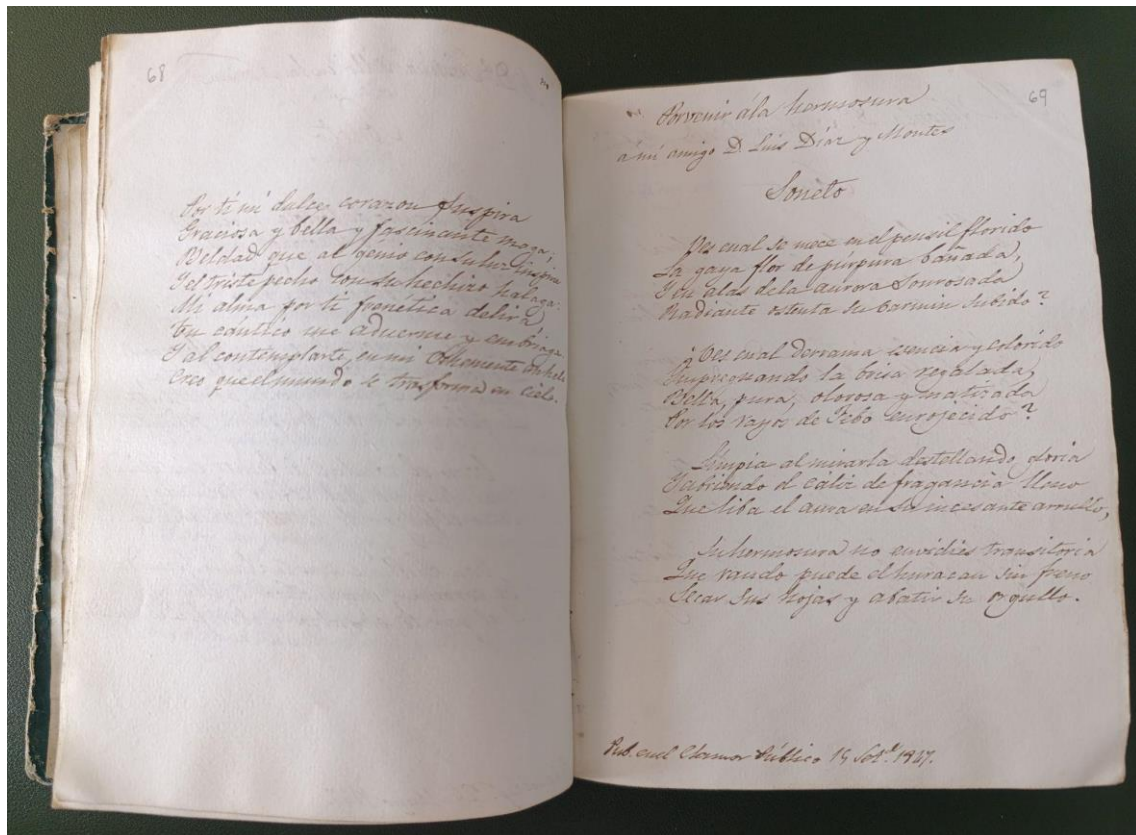 68
Por ti mi dulce corazon suspira
Graciosa y bella y fascinante maga,
Beldad que al genio con su luz inspira
Y el triste pecho con su hechizo halaga.
Mi alma por ti frenética delira,
Tu cantico me aduerme y embriaga
Y al contemplarte, en mi vehemente anhelo
Creo que el mundo se trasforma en cielo.
69
Porvenir de la hermosura
a mi amigo D. Luis Díaz y Montes
Soneto
Ves cual se mece en el pensil florido
La gaya flor de púrpura bañada,
Y en alas de la aurora sonrosada
Radiante ostenta su carmin subido?
¿Ves cual derrama esencia y colorido
Impregnando la brisa regalada,
Bella, pura, olorosa y matizada
Por los rayos de Febo enrojecido?
Limpia al mirarla destellando gloria
Y abriendo el cáliz de fragancia lleno
Que liba el aura en su incesante arrullo,
Su hermosura no envidies transitoria
Que raudo puede el huracan sin freno
Secar sus hojas y abatir su orgullo.
Pub. en el Clamor Público 15 Set.e